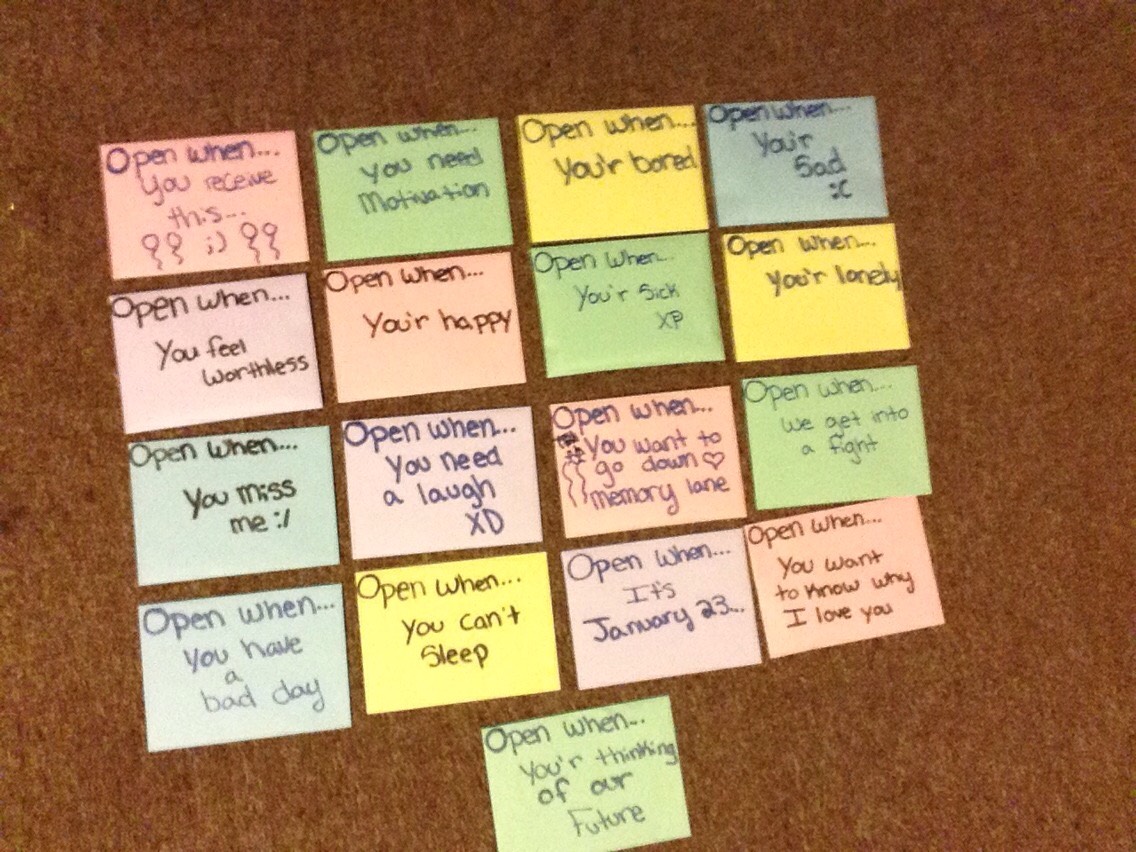 Open when...
you receive
this...
;)
Open when...
you need
Motivation
Open when...
You'r bored
Open when...
You'r
Sad
:C
Open when...
You feel
Worthless
Open when...
You'r happy
Open when...
You'r Sick
XP
Open when...
You'r lonely
Open when...
You miss
me :/
Open when...
you need
a laugh
XD
Open when...
You want to
go down ♡
memory lane
Open when...
We get into
a fight
Open when...
you have
a
bad day
Open when...
you can't
Sleep
Open when...
It's
January 23...
Open when...
You want
to know why
I love you
Open when...
you'r thinking
of our
Future